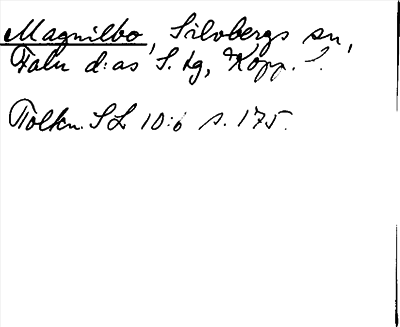 Magnilbo, Silvbergs sn,
Falu d:as S. tg, Kopp. ?.
Tolkn. SL 10:6 s. 175.